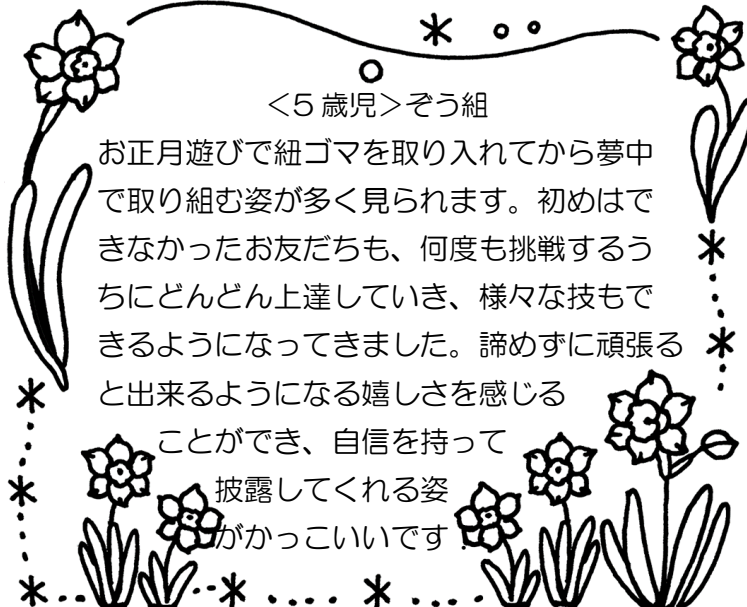 ＜5歳児＞ぞう組
お正月遊びで紐ゴマを取り入れてから夢中
で取り組む姿が多く見られます。初めはで
きなかったお友だちも、何度も挑戦するう
ちにどんどん上達していき、様々な技もで
きるようになってきました。諦めずに頑張る
と出来るようになる嬉しさを感じる
ことができ、自信を持って
披露してくれる姿
がかっこいいです